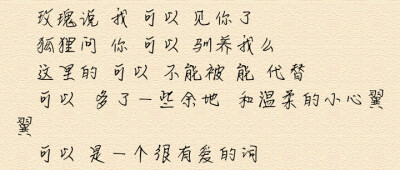 玫瑰说 我 可以 见你了
狐狸问 你 可以 驯养我么
这里的 可以 不能被 能 代替
可以 多了一些余地 和温柔的小心翼
翼
可以 是一个很有爱的词